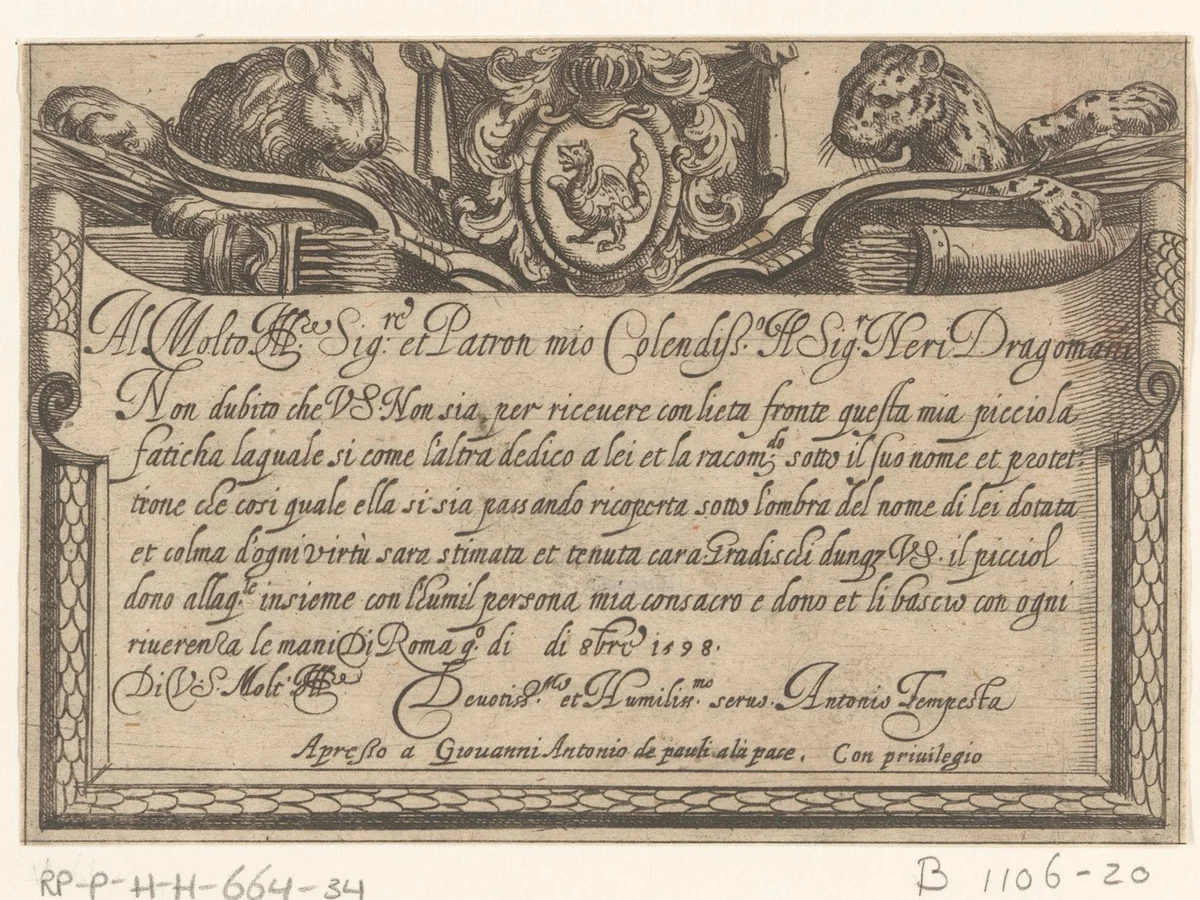 Al Molto Ill.re Sig.re et Patron mio Colendiss.o Il Sig.r Neri Dragomani
Non dubito che V S. Non sia per riceuere con lieta fronte questa mia picciola
faticha laquale si come l'altra dedico a lei et la racom.do sotto il suo nome et protet:
tione che cosi quale ella si sia passando ricoperta sotto l'ombra del nome di lei dotata
et colma d'ogni virtù sara stimata et tenuta cara Gradischi dunqz V S. il picciol
dono allaq.le insieme con l'humil persona mia consacro e dono et li bascio con ogni
riuerenza le mani Di Roma q.o di di 8bre 1598.
Di V. S. Molt' Ill.re Deuotiss.mo et Humiliss.mo seruo. Antonio Tempesta
Apresso a Giouanni Antonio de pauli ala pace. Con priuilegio
RP-P-H-H-664-34
B 1106-20